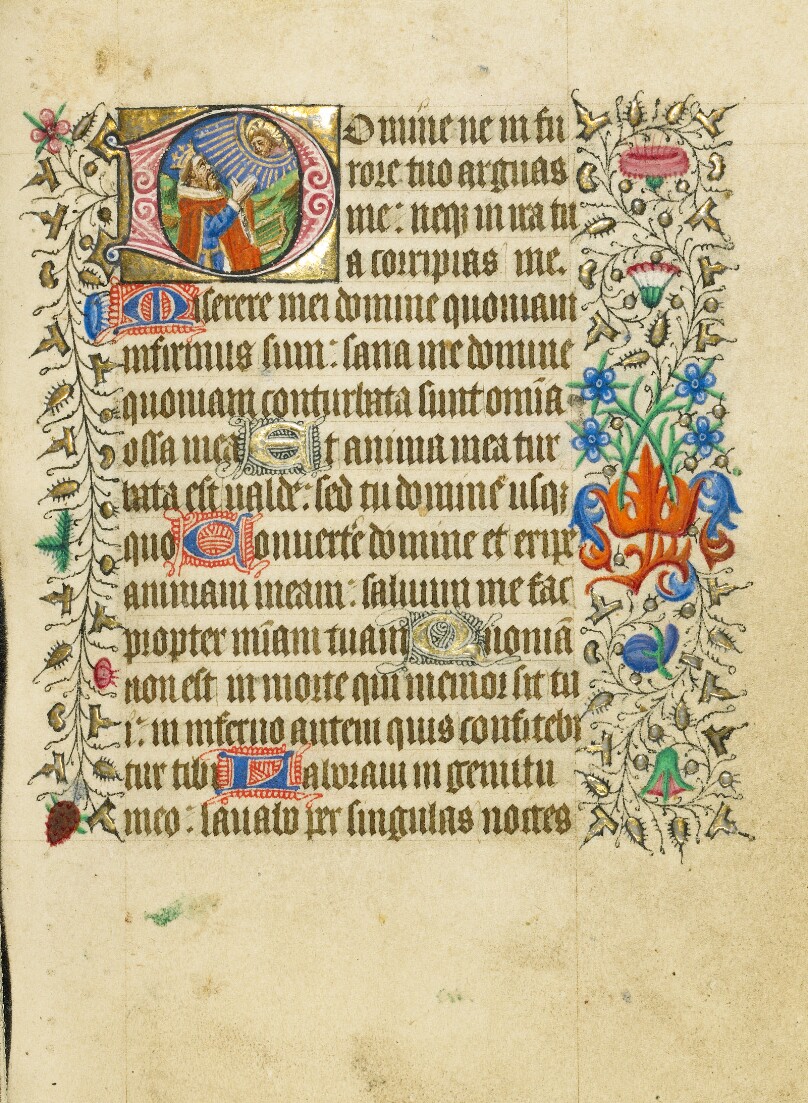 Domine ne in fu
rore tuo arguas
me: neqꝫ in ira tu
a corripias me.
Miserere mei domine quoniam
infirmus sum: sana me domine
quoniam conturbata sunt om̄ia
ossa mea Et anima mea tur
bata est valde: sed tu domine usqꝫ
quo Conuerte domine et eripe
animam meam: saluum me fac
propter mīam tuam Quoniā
non est in morte qui memor sit tu
i: in inferno autem quis confitebi
tur tibi Laboraui in gemitu
meo: lauabo per singulas noctes